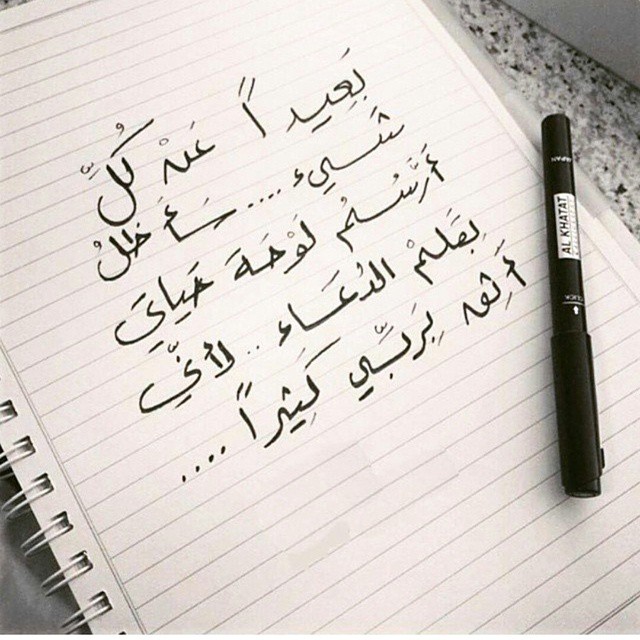 بَعِيداً عَنْ كُلِّ
شَيء .... سَأَظلُ
أَرْسُمُ لَوْحَةَ حَياتِي
بِقَلَمْ الدُعَاء .. لأنِّي
أَثِقُ بِرَبِّي كَثِيراً ....
JAPAN
AL KHATAT
CLICK